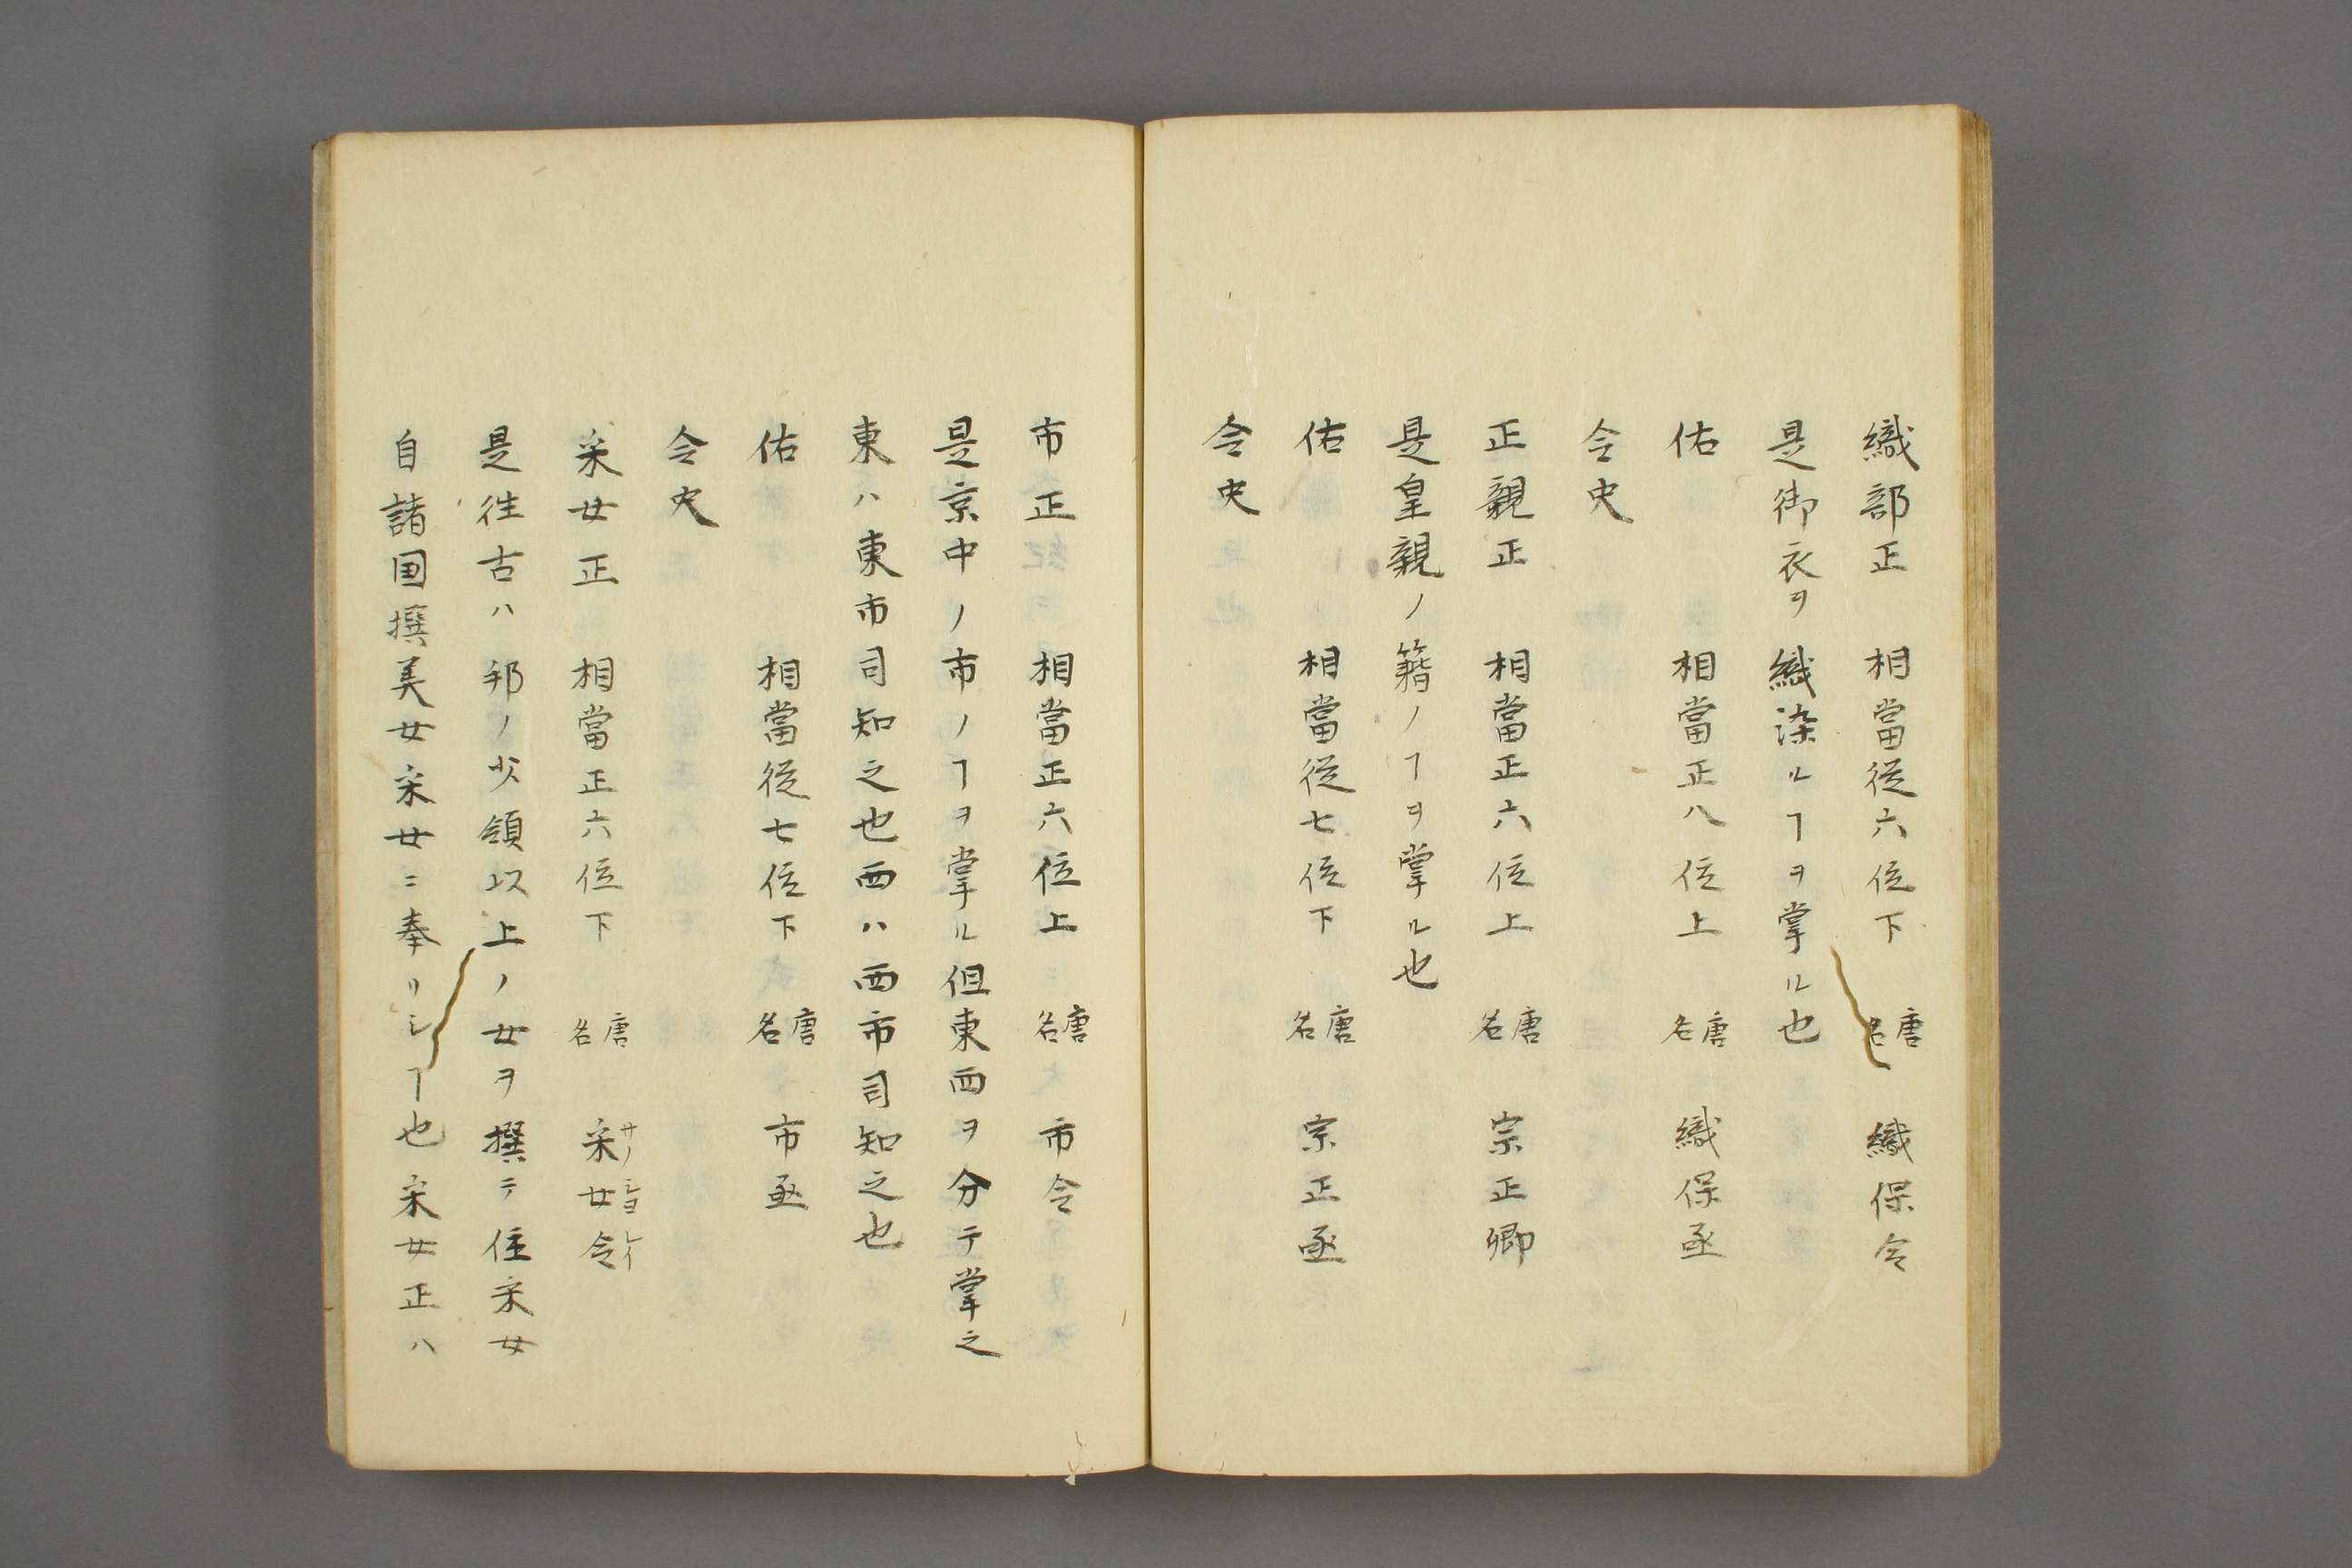 織部正 相當従六位下 唐名 織保令
是御衣ヲ織染ルヿヲ掌ル也
佑 相當正八位上 唐名 織保丞
令史
正親正 相當正六位上 唐名 宗正卿
是皇親ノ籍ノヿヲ掌ル也
佑 相當従七位下 唐名 宗正丞
令史
市正 相當正六位上 唐名 市令
是京中ノ市ノヿヲ掌ル但東西ヲ分テ掌之
東ハ東市司知之也西ハ西市司知之也
佑 相當従七位下 唐名 市丞
令史
采女正 相當正六位下 唐名 采女令 サイ シヨ レイ
是往古ハ郡ノ少領以上ノ女ヲ撰テ任采女
自諸国撰美女采女ニ奉リシヿ也采女正ハ